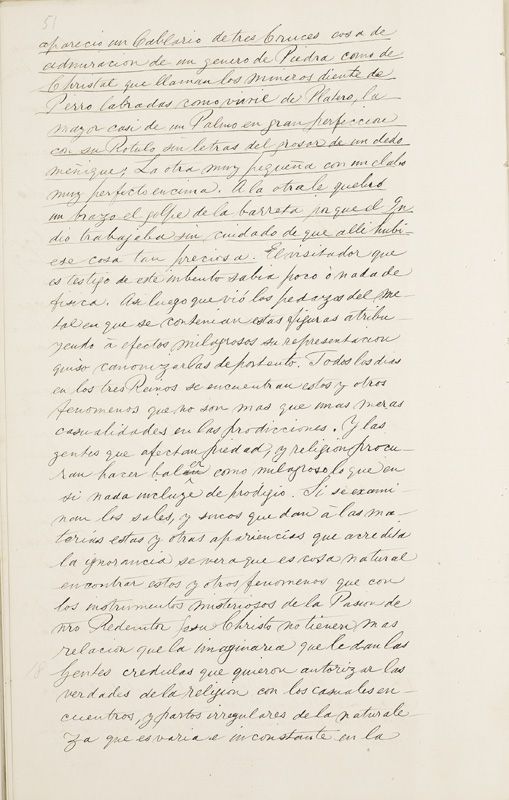 51
aparecio un Cablario de tres Cruces cosa de
admiracion de un genero de Piedra como de
Christal que llaman los mineros diente de
Perro labradas como viril de Platero, la
mayor casi de un Palmo en gran perfeccion
con su Rotulo sin letras del grosor de un dedo
meñique; La otra muy pequeña con un clabo
muy perfecto encima. A la otra le quebró
un brazo el golpe de la barreta porque el In-
dio trabajaba sin cuidado de que alli hubi-
ese cosa tan preciosa. El visitador que
es testigo de este imbento sabia poco ò nada de
fisica. Asi luego que vió los pedazos del me-
tal en que se contenian estas figuras atribu-
yendo à efectos milagrosos su representacion
quiso canonizarlas de portento. Todos los dias
en los tres Reinos se encuentran estos y otros
fenomenos que no son mas que unas meras
casualidades en las prodicciones. Y las
gentes que afectan piedad, y religion procu-
ran hacer baler como milagroso lo que en
si nada incluye de prodigio. Si se exami-
nan los sales, y sucos que dan à las ma-
terias estas y otras apariencias que acredita
la ignorancia se vera que es cosa natural
encontrar estos y otros fenomenos que con
los instrumentos misteriosos de la Pasion de
nro Redentor Jesu Christo no tienen mas
relacion que la imaginaria que le dan las
18 Gentes credulas que quieron autorizar las
verdades de la religion con los casuales en-
cuentros, y partos irregulares de la naturale-
za que es varia e inconstante en la